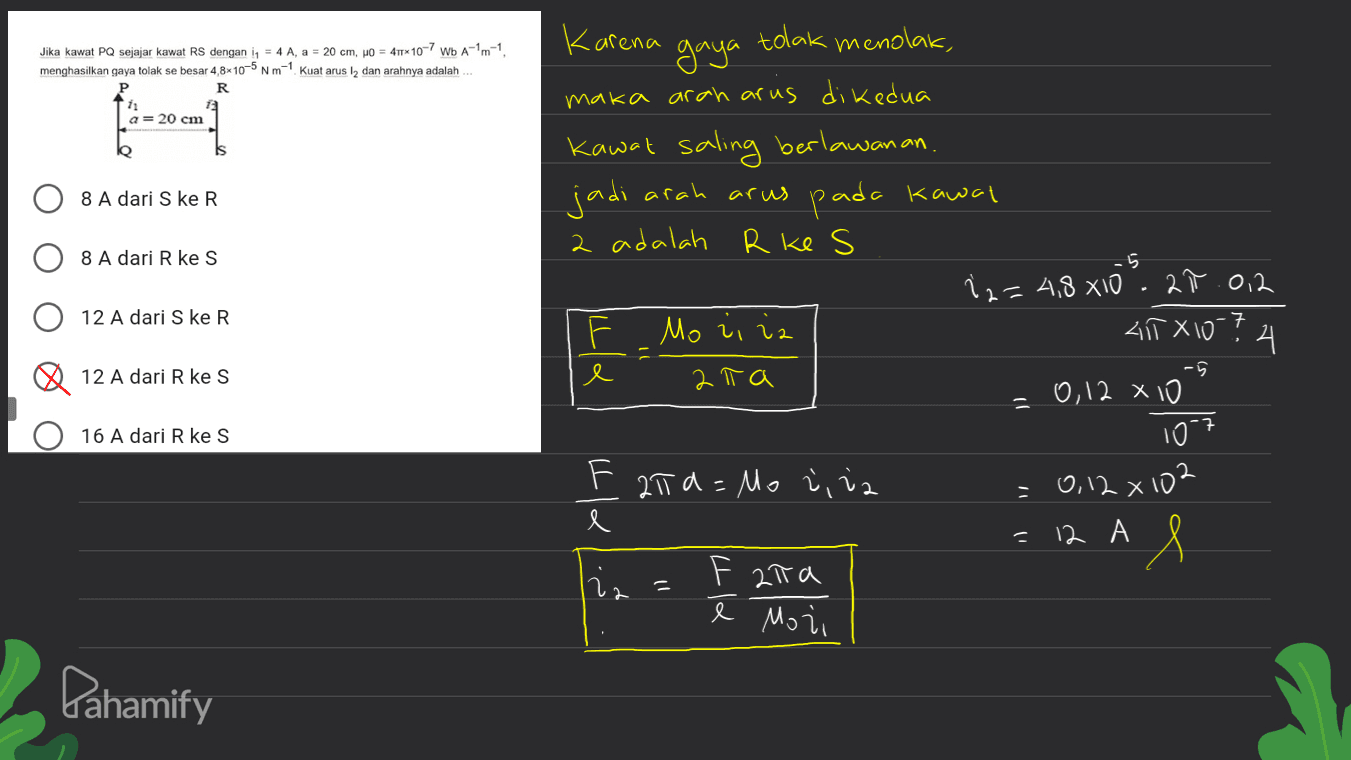 Jika kawat PQ sejajar kawat RS dengan i₁ = 4 A, a = 20 cm, μ0 = 4π×10⁻⁷ Wb A⁻¹m⁻¹,
menghasilkan gaya tolak se besar 4,8×10⁻⁵ N m⁻¹. Kuat arus I₂ dan arahnya adalah ...
P R
i₁ i₂
a = 20 cm
Q S
8 A dari S ke R
8 A dari R ke S
12 A dari S ke R
12 A dari R ke S
16 A dari R ke S
Karena gaya tolak menolak,
maka arah arus dikedua
kawat saling berlawanan.
jadi arah arus pada kawat
2 adalah R ke S
F/l = Mo i₁ i₂ / 2πa
F/l 2πa = Mo i₁ i₂
i₂ = F/l 2πa / Mo i₁
i₂ = 4,8 x10⁻⁵ . 2π . 0,2 / 4π x 10⁻⁷ . 4
= 0,12 x 10⁻⁵ / 10⁻⁷
= 0,12 x 10²
= 12 A
Pahamify